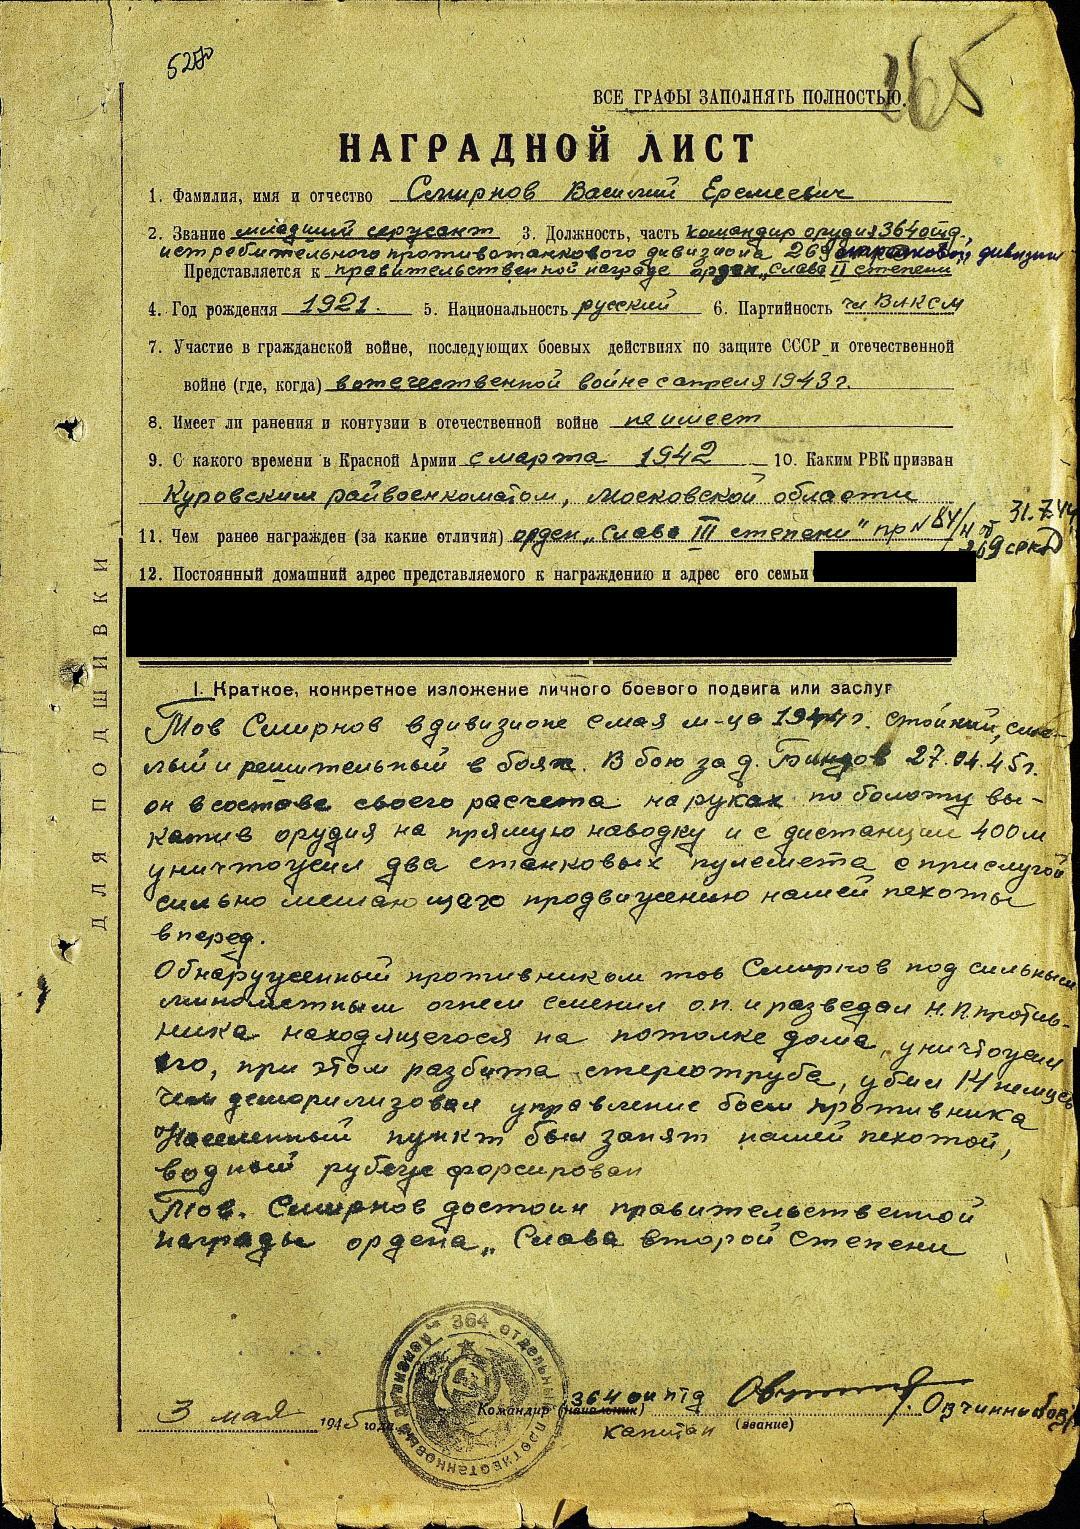 528
265
ВСЕ ГРАФЫ ЗАПОЛНЯТЬ ПОЛНОСТЬЮ.
НАГРАДНОЙ ЛИСТ
1. Фамилия, имя и отчество Смирнов Василий Еремеевич
2. Звание младший сержант 3. Должность, часть командир орудия 364 отд.
истребительного противотанкового дивизиона 269 стрелковой дивизии
Представляется к правительственной награде орден „Слава II степени
4. Год рождения 1921. 5. Национальность русский 6. Партийность чл ВЛКСМ
7. Участие в гражданской войне, последующих боевых действиях по защите СССР и отечественной
войне (где, когда) в отечественной войне с апреля 1943 г.
8. Имеет ли ранения и контузии в отечественной войне не имеет
9. С какого времени в Красной Армии с марта 1942 10. Каким РВК призван
Куровским райвоенкоматом, Московской области
11. Чем ранее награжден (за какие отличия) орден „Слава III степени" пр N 84/н от 31.7.44
269 СРКД
12. Постоянный домашний адрес представляемого к награждению и адрес его семьи
ДЛЯ ПОДШИВКИ
I. Краткое, конкретное изложение личного боевого подвига или заслуг
Тов Смирнов в дивизионе с мая м-ца 1944 г. стойкий, сме-
лый и решительный в боях. В бою за д. 27.04.45 г.
он в составе своего расчета на руках по болоту вы-
катив орудия на прямую наводку и с дистанции 400 м
уничтожил два станковых пулемета с прислугой
сильно мешающаго продвижению нашей пехоты
вперед.
Обнаруженный противником тов Смирнов под сильным
минометным огнем сменил о.п. и разведал Н.П. против-
ника находящегося на потолке дома, уничтожил
его, при этом разбита стереотруба, убил 14 немцев
Чем деморилизовал управление боем противника
Населенный пункт был занят нашей пехотой,
водный рубеж форсирован
Тов. Смирнов достоин правительственной
награды ордена „Слава второй степени
364 ОТДЕЛЬНЫЙ ПРОТИВОТАНКОВЫЙ ДИВИЗИОН
3 мая 1945 года Командир (начальник) 364 ОИПТД Овчинников
капитан (звание)